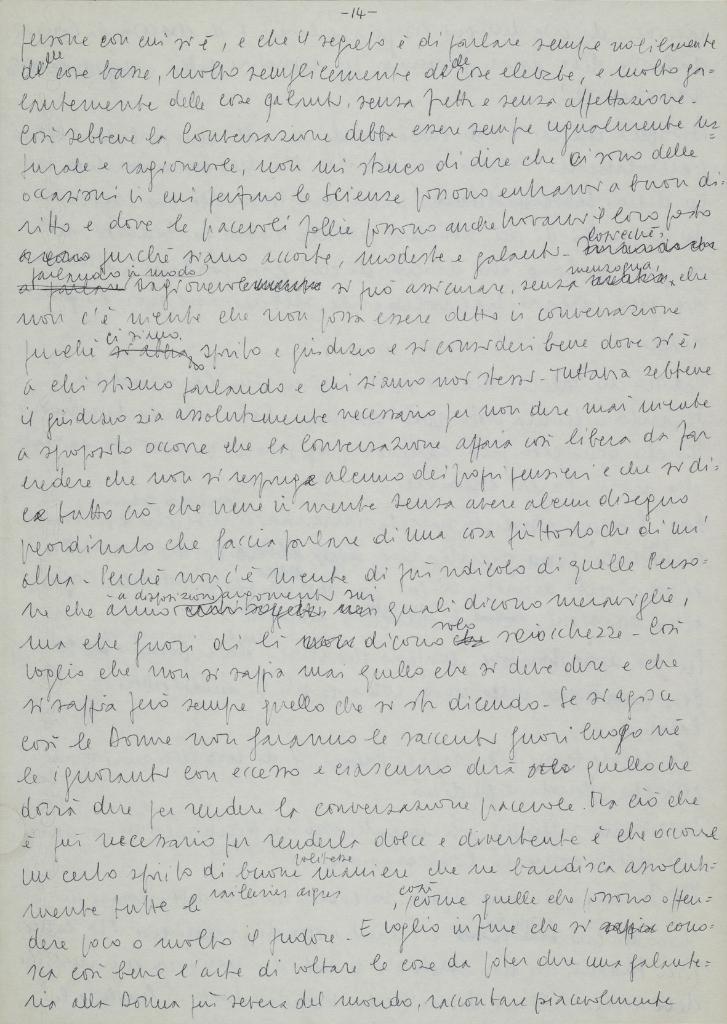 -14-
persone con cui si è, e che il segreto è di parlare sempre nobilmente
delle cose basse, molto semplicemente delle cose elevate, e molto ga-
lantemente delle cose galanti, senza fretta e senza affettazione.
Così sebbene la Conversazione debba essere sempre ugualmente na=
turale e ragionevole, non mi stanco di dire che ci sono delle
occasioni in cui perfino le Scienze possono entrarvi a buon di=
ritto e dove le piacevoli follie possono anche trovarvi il loro posto
purché siano accorte, modeste e galanti. Cosicché,
parlando in modo ragionevole si può assicurare, senza menzogna, che
non c'è niente che non possa essere detto in conversazione
purché ci siano spirito e giudizio e si consideri bene dove si è,
a chi stiamo parlando e chi siamo noi stessi. Tuttavia sebbene
il giudizio sia assolutamente necessario per non dire mai niente
a sproposito occorre che la Conversazione appaia così libera da far
credere che non si respinga alcuno dei propri pensieri e che si di=
ca tutto ciò che viene in mente senza avere alcun disegno
preordinato che faccia parlare di una cosa piuttosto che di un'
altra. Perché non c'è niente di più ridicolo di quelle Perso=
ne che ànno a disposizione argomenti sui quali dicono meraviglie,
ma che fuori di lì dicono solo sciocchezze. Così
voglio che non si sappia mai quello che si deve dire e che
si sappia però sempre quello che si sta dicendo. Se si agisce
così le Donne non faranno le saccenti fuori luogo né
le ignoranti con eccesso e ciascuno dirà quello che
dovrà dire per rendere la conversazione piacevole. Ma ciò che
è più necessario per renderla dolce e divertente è che occorre
un certo spirito di buone maniere politesse che ne bandisca assoluta=
mente tutte le railleries aigres, così come quelle che possono offen=
dere poco o molto il pudore. E voglio infine che si cono=
sca così bene l'arte di voltare le cose da poter dire una galante=
ria alla Donna più severa del mondo, raccontare piacevolmente